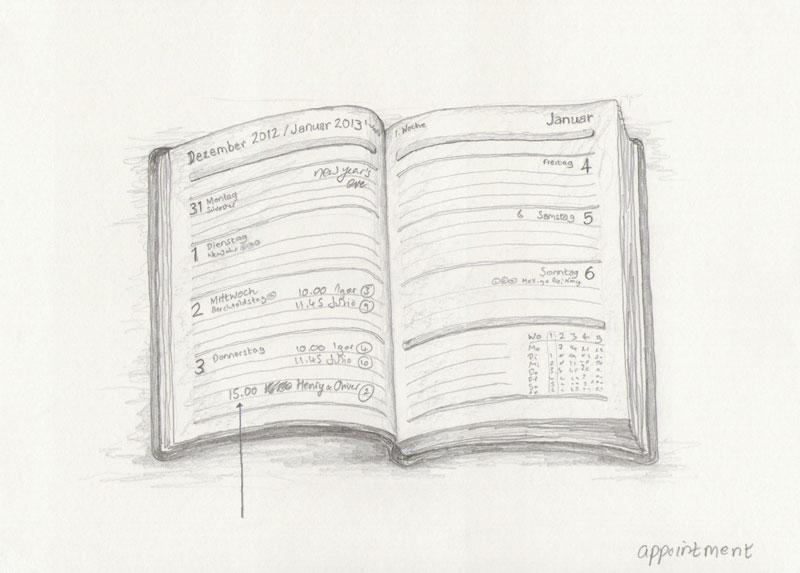 Dezember 2012 / Januar 2013
new year's
eve
31 Montag
Silvester
1 Dienstag
Neujahr
2 Mittwoch
Berchtoldstag
10.00 Igor 3
11.45 Julio 9
3 Donnerstag
10.00 Igor 4
11.45 Julio 10
15.00 Henry & Oliver 2
1. Woche
Januar
Freitag 4
6 Samstag 5
Sonntag 6
Wo 1 2 3 4 5
Mo
Di
Mi
Do
appointment